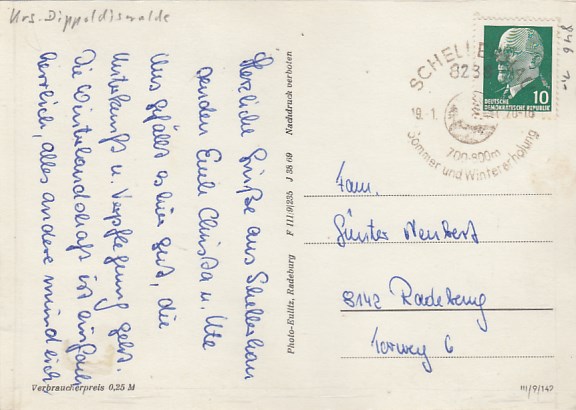 Krs. Dippoldiswalde
Herzliche Grüße aus Schellerhau
senden Euch Christa u. Ute
Uns gefällt es hier gut, die
Unterkunft u. Verpflegung geht.
Die Winterlandschaft ist einfach
herrlich, alles andere mündlich
Verbraucherpreis 0,25 M
Photo-Eulitz, Radeburg F III/9/235 J 38 69 Nachdruck verboten
SCHELLE
19.1.
700-800m
Sommer und Wintererholung
DEUTSCHE
DEMOKRATISCHE REPUBLIK
10
Fam.
Günter
8142 Radeberg
Torweg 6
III/9/142